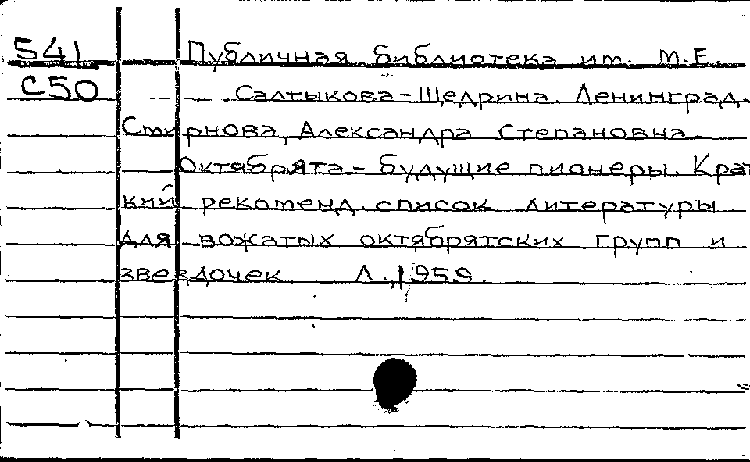 541 Публичная библиотека им. М.Е.
С50 Салтыкова-Щедрина. Ленинград.
Смирнова, Александра Степановна.
Октябрята - будущие пионеры. Крат
кий рекоменд. список литературы
для вожатых октябрятских групп и
звездочек Л., 1959.